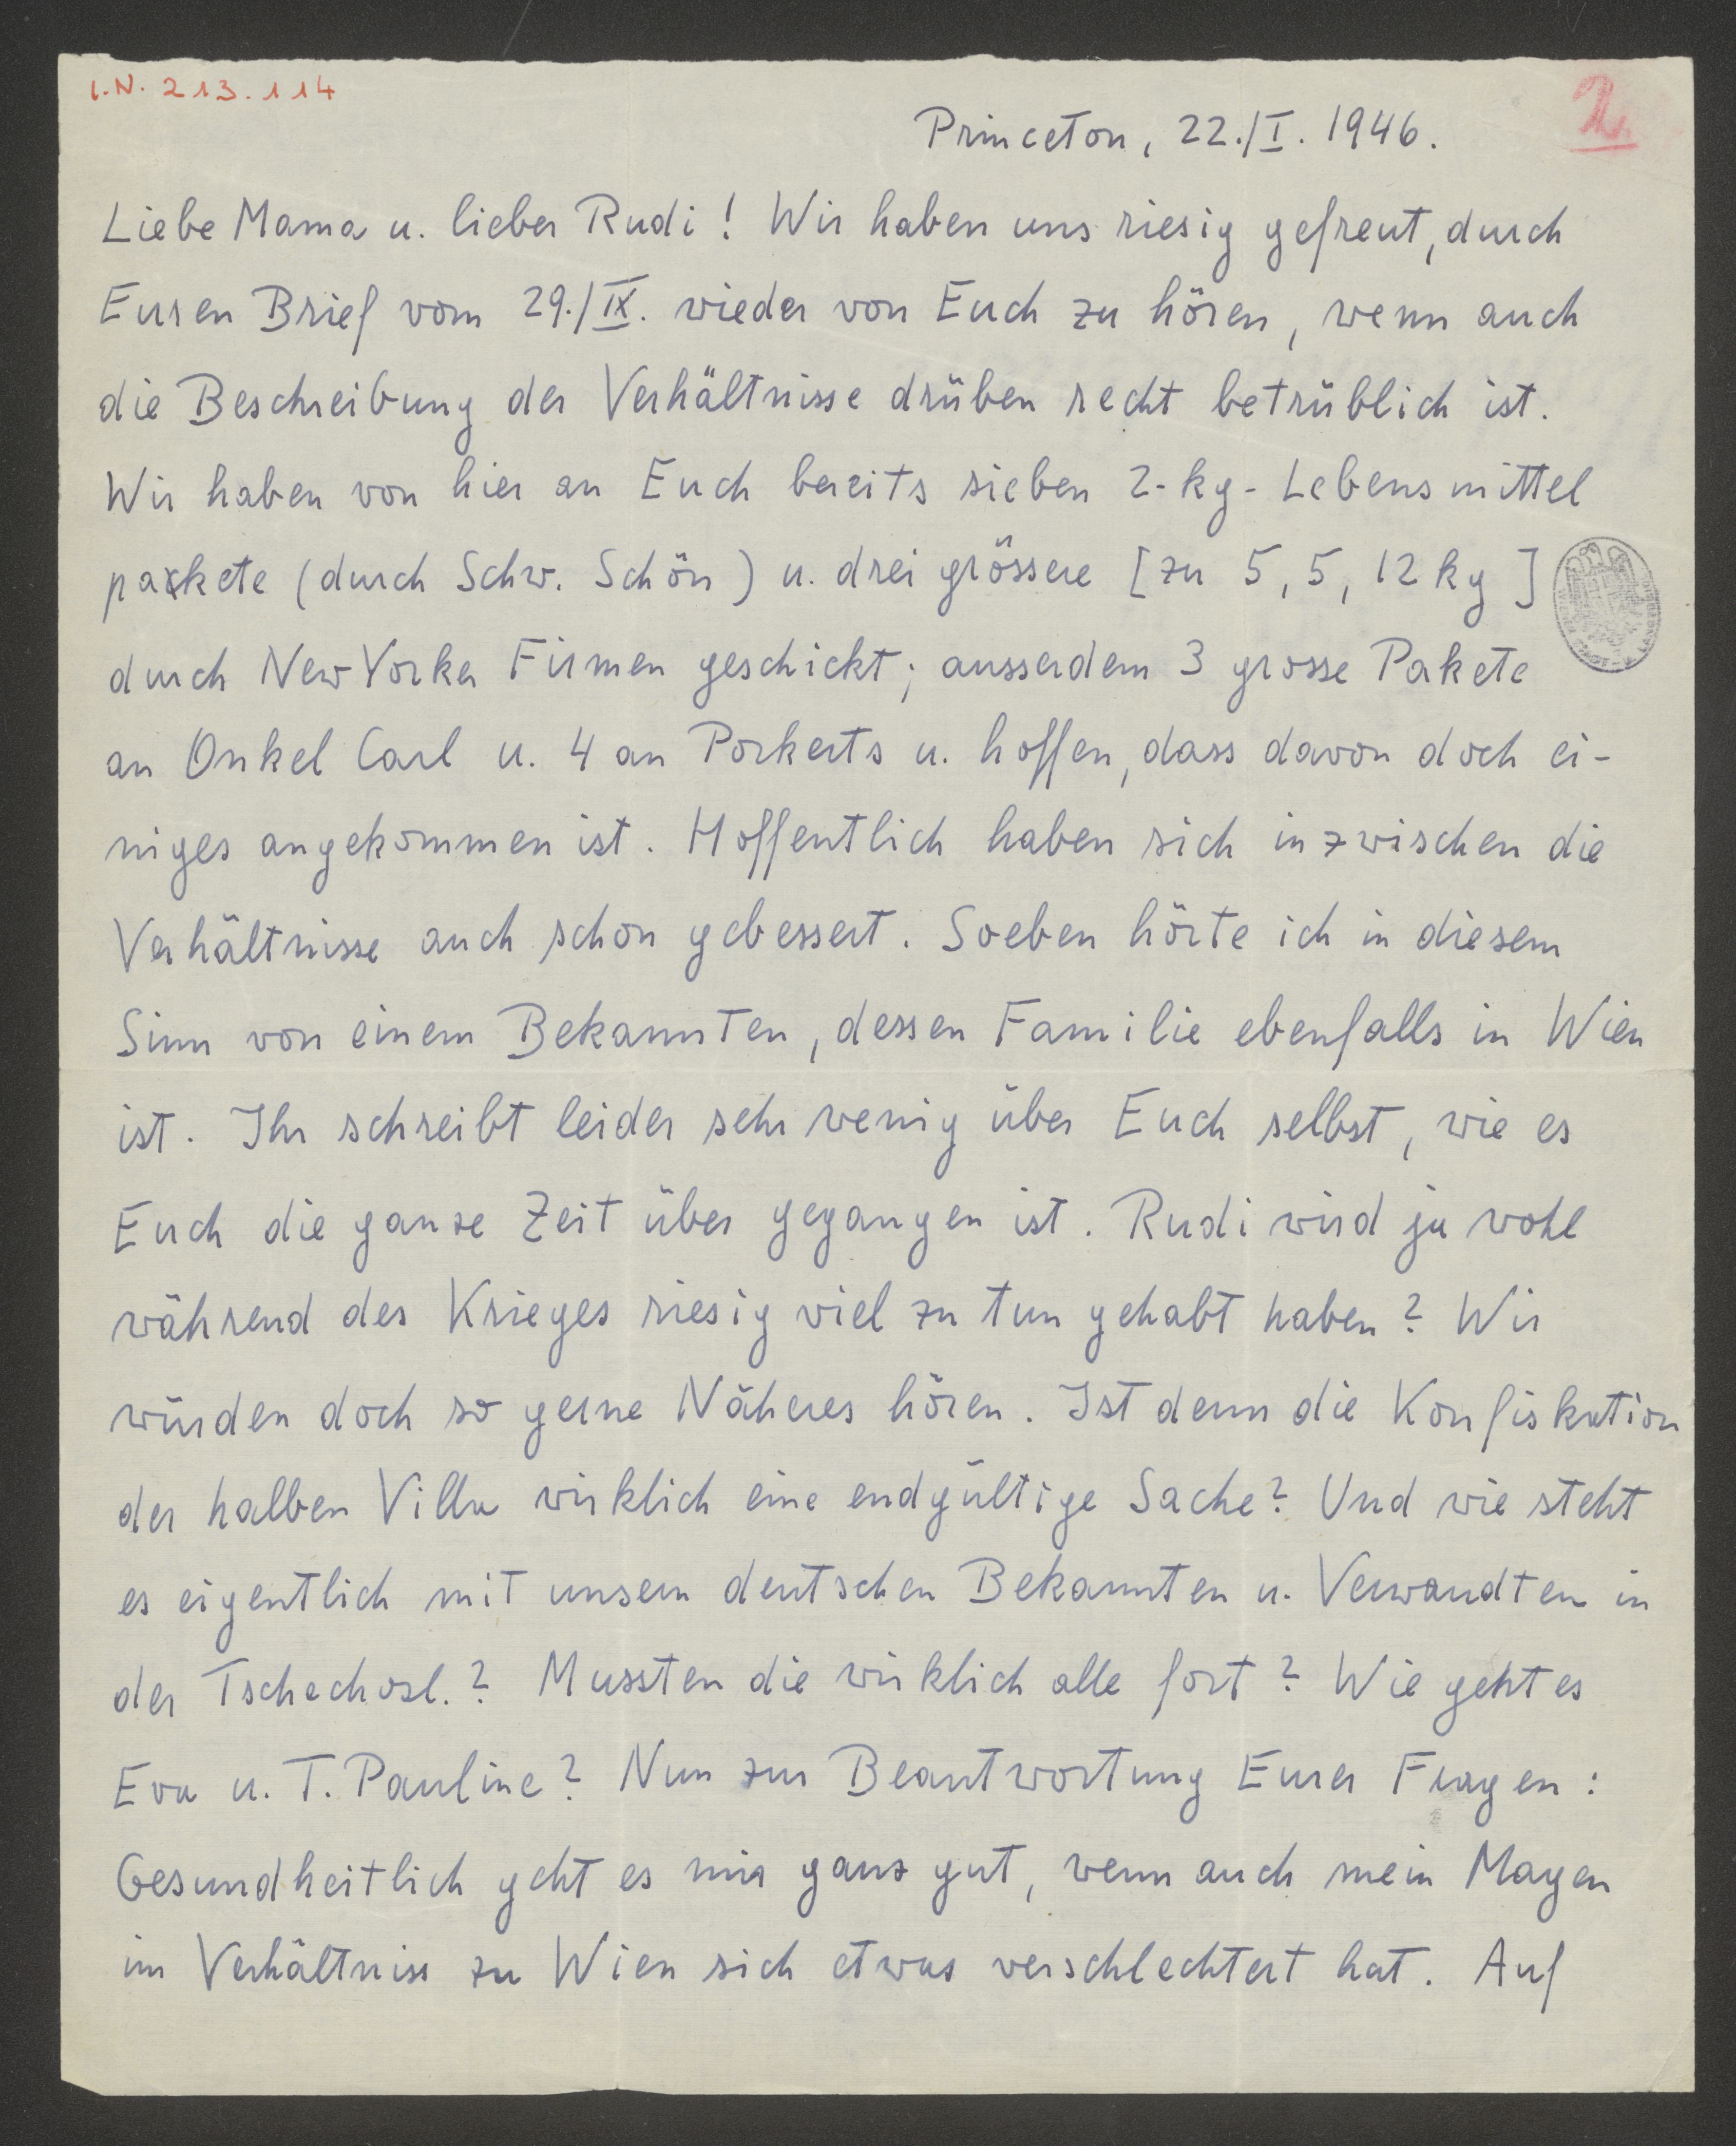 I.N. 213.114
2.
Princeton, 22./I. 1946.
Liebe Mama u. lieber Rudi! Wir haben uns riesig gefreut, durch
Euren Brief vom 29./IX. wieder von Euch zu hören, wenn auch
die Beschreibung der Verhältnisse drüben recht betrüblich ist.
Wir haben von hier an Euch bereits sieben 2-kg-Lebensmittel
pakete (durch Schw. Schön) u. drei grössere [zu 5, 5, 12 kg]
durch New Yorker Firmen geschickt; ausserdem 3 grosse Pakete
an Onkel Carl u. 4 an Porkerts u. hoffen, dass davon doch ei-
niges angekommen ist. Hoffentlich haben sich inzwischen die
Verhältnisse auch schon gebessert. Soeben hörte ich in diesem
Sinn von einem Bekannten, dessen Familie ebenfalls in Wien
ist. Ihr schreibt leider sehr wenig über Euch selbst, wie es
Euch die ganze Zeit über gegangen ist. Rudi wird ja wohl
während des Krieges riesig viel zu tun gehabt haben? Wir
würden doch so gerne Näheres hören. Ist denn die Konfiskation
der halben Villa wirklich eine endgültige Sache? Und wie steht
es eigentlich mit unsern deutschen Bekannten u. Verwandten in
der Tschechosl.? Mussten die wirklich alle fort? Wie geht es
Eva u. T. Pauline? Nun zur Beantwortung Eurer Fragen:
Gesundheitlich geht es mir ganz gut, wenn auch mein Magen
im Verhältniss zu Wien sich etwas verschlechtert hat. Auf